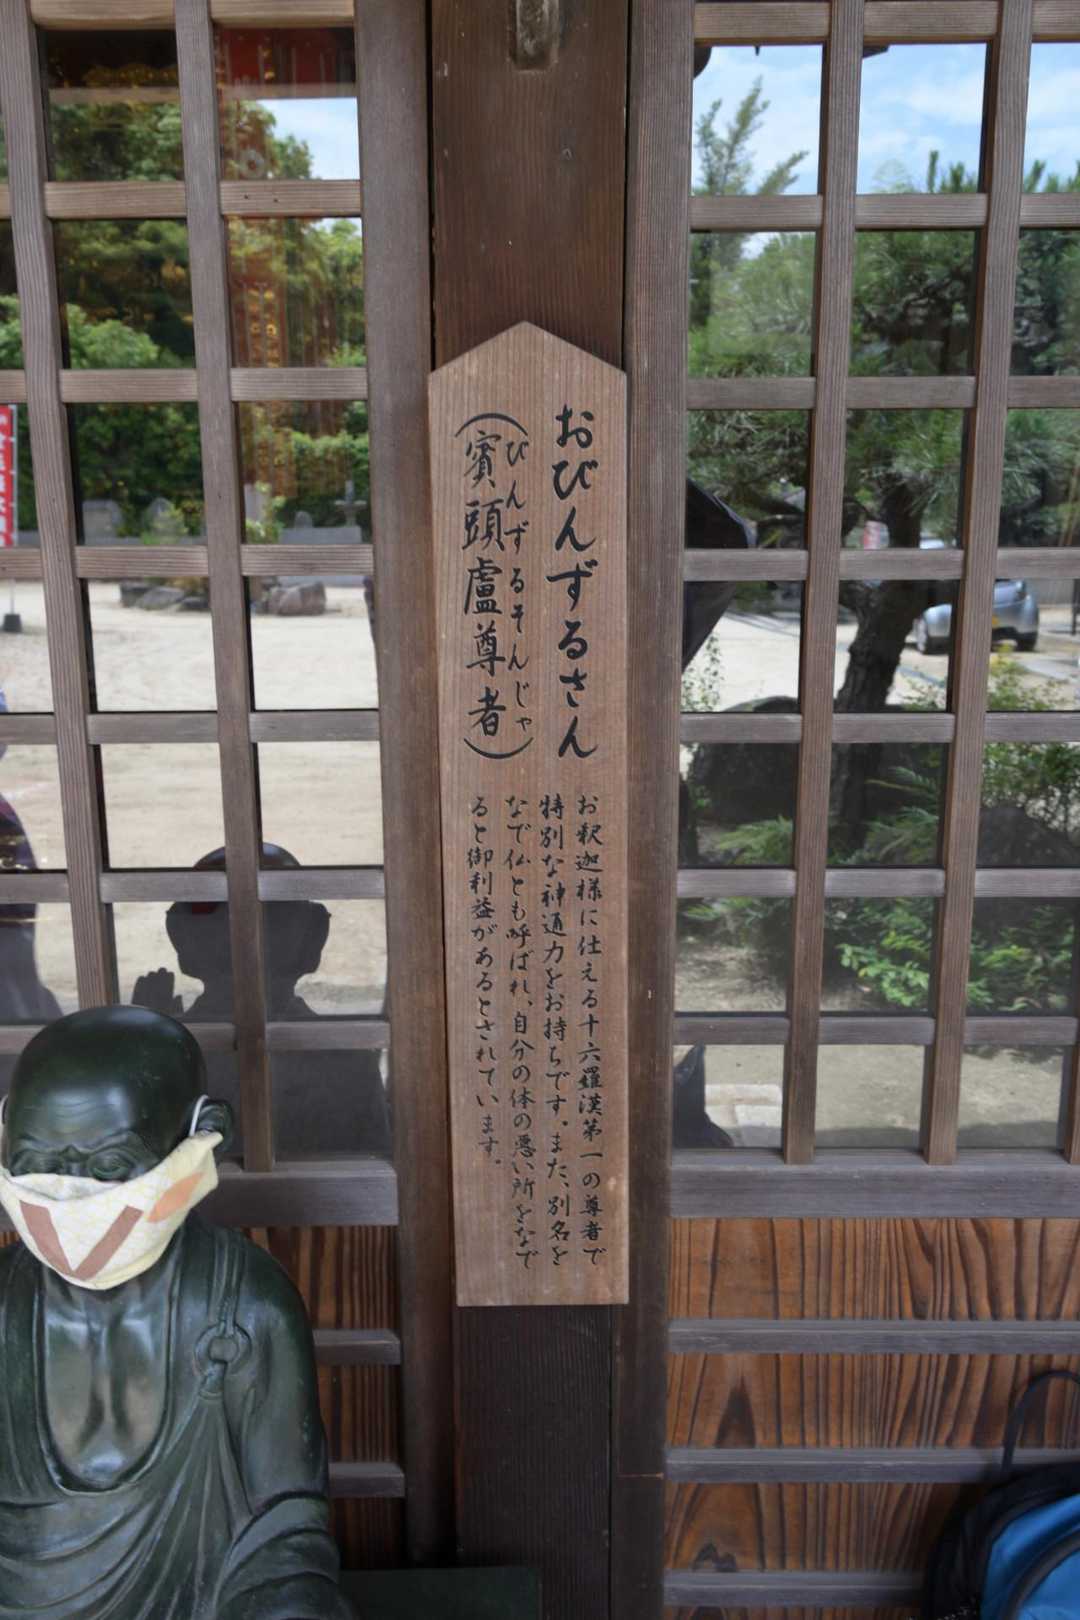 おびんずるさん
びんずるそんじゃ
(賓頭盧尊者)
お釈迦様に仕える十六羅漢第一の尊者で
特別な神通力をお持ちです。また、別名を
なで仏とも呼ばれ、自分の体の悪い所をなで
ると御利益があるとされています。